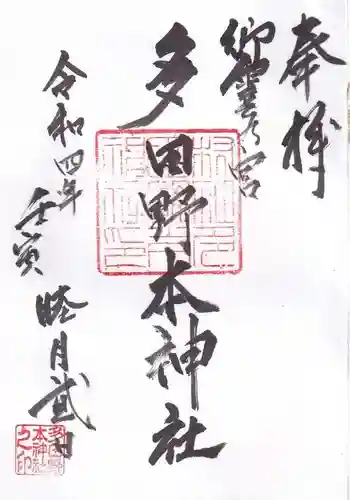 奉拝
御霊乃宮
多田野本神社
令和四年
壬寅 睦月弐日
多田野
本神社
之印